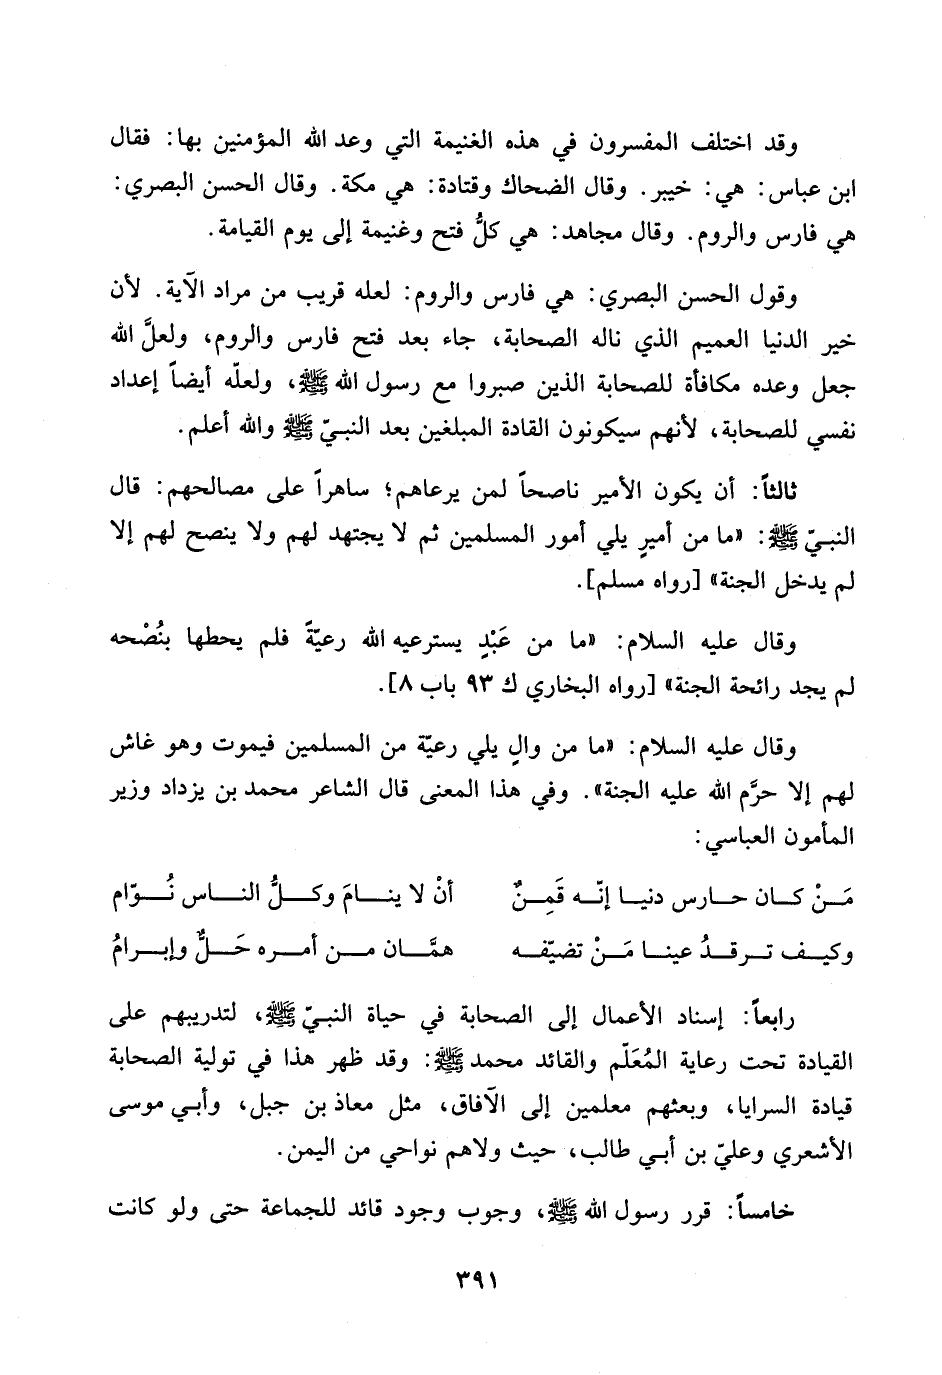 وقد اختلف المفسرون في هذه الغنيمة التي وعد الله المؤمنين بها: فقال
ابن عباس: هي: خيبر. وقال الضحاك وقتادة: هي مكة. وقال الحسن البصري:
هي فارس والروم. وقال مجاهد: هي كلُّ فتح وغنيمة إلى يوم القيامة.
وقول الحسن البصري: هي فارس والروم: لعله قريب من مراد الآية. لأن
خير الدنيا العميم الذي ناله الصحابة، جاء بعد فتح فارس والروم، ولعلَّ الله
جعل وعده مكافأة للصحابة الذين صبروا مع رسول الله ﷺ، ولعلّه أيضاً إعداد
نفسي للصحابة، لأنهم سيكونون القادة المبلغين بعد النبيّ ﷺ والله أعلم.
ثالثاً: أن يكون الأمير ناصحاً لمن يرعاهم؛ ساهراً على مصالحهم: قال
النبيّ ﷺ: «ما من أميرٍ يلي أمور المسلمين ثم لا يجتهد لهم ولا ينصح لهم إلا
لم يدخل الجنة» [رواه مسلم].
وقال عليه السلام: «ما من عَبْدٍ يسترعيه الله رعيّةً فلم يحطها بنُصْحه
لم يجد رائحة الجنة» [رواه البخاري ك ٩٣ باب ٨].
وقال عليه السلام: «ما من والٍ يلي رعيّة من المسلمين فيموت وهو غاش
لهم إلا حرَّم الله عليه الجنة». وفي هذا المعنى قال الشاعر محمد بن يزداد وزير
المأمون العباسي:
مَنْ كان حارس دنيا إنّه قَمِنٌ أنْ لا ينامَ وكلُّ الناس نُوّام
وكيف ترقدُ عينا مَنْ تضيّفه همَّان من أمره حَلٌّ وإبرامُ
رابعاً: إسناد الأعمال إلى الصحابة في حياة النبيّ ﷺ، لتدريبهم على
القيادة تحت رعاية المُعَلّم والقائد محمد ﷺ: وقد ظهر هذا في تولية الصحابة
قيادة السرايا، وبعثهم معلمين إلى الآفاق، مثل معاذ بن جبل، وأبي موسى
الأشعري وعليّ بن أبي طالب، حيث ولاهم نواحي من اليمن.
خامساً: قرر رسول الله ﷺ، وجوب وجود قائد للجماعة حتى ولو كانت
٣٩١